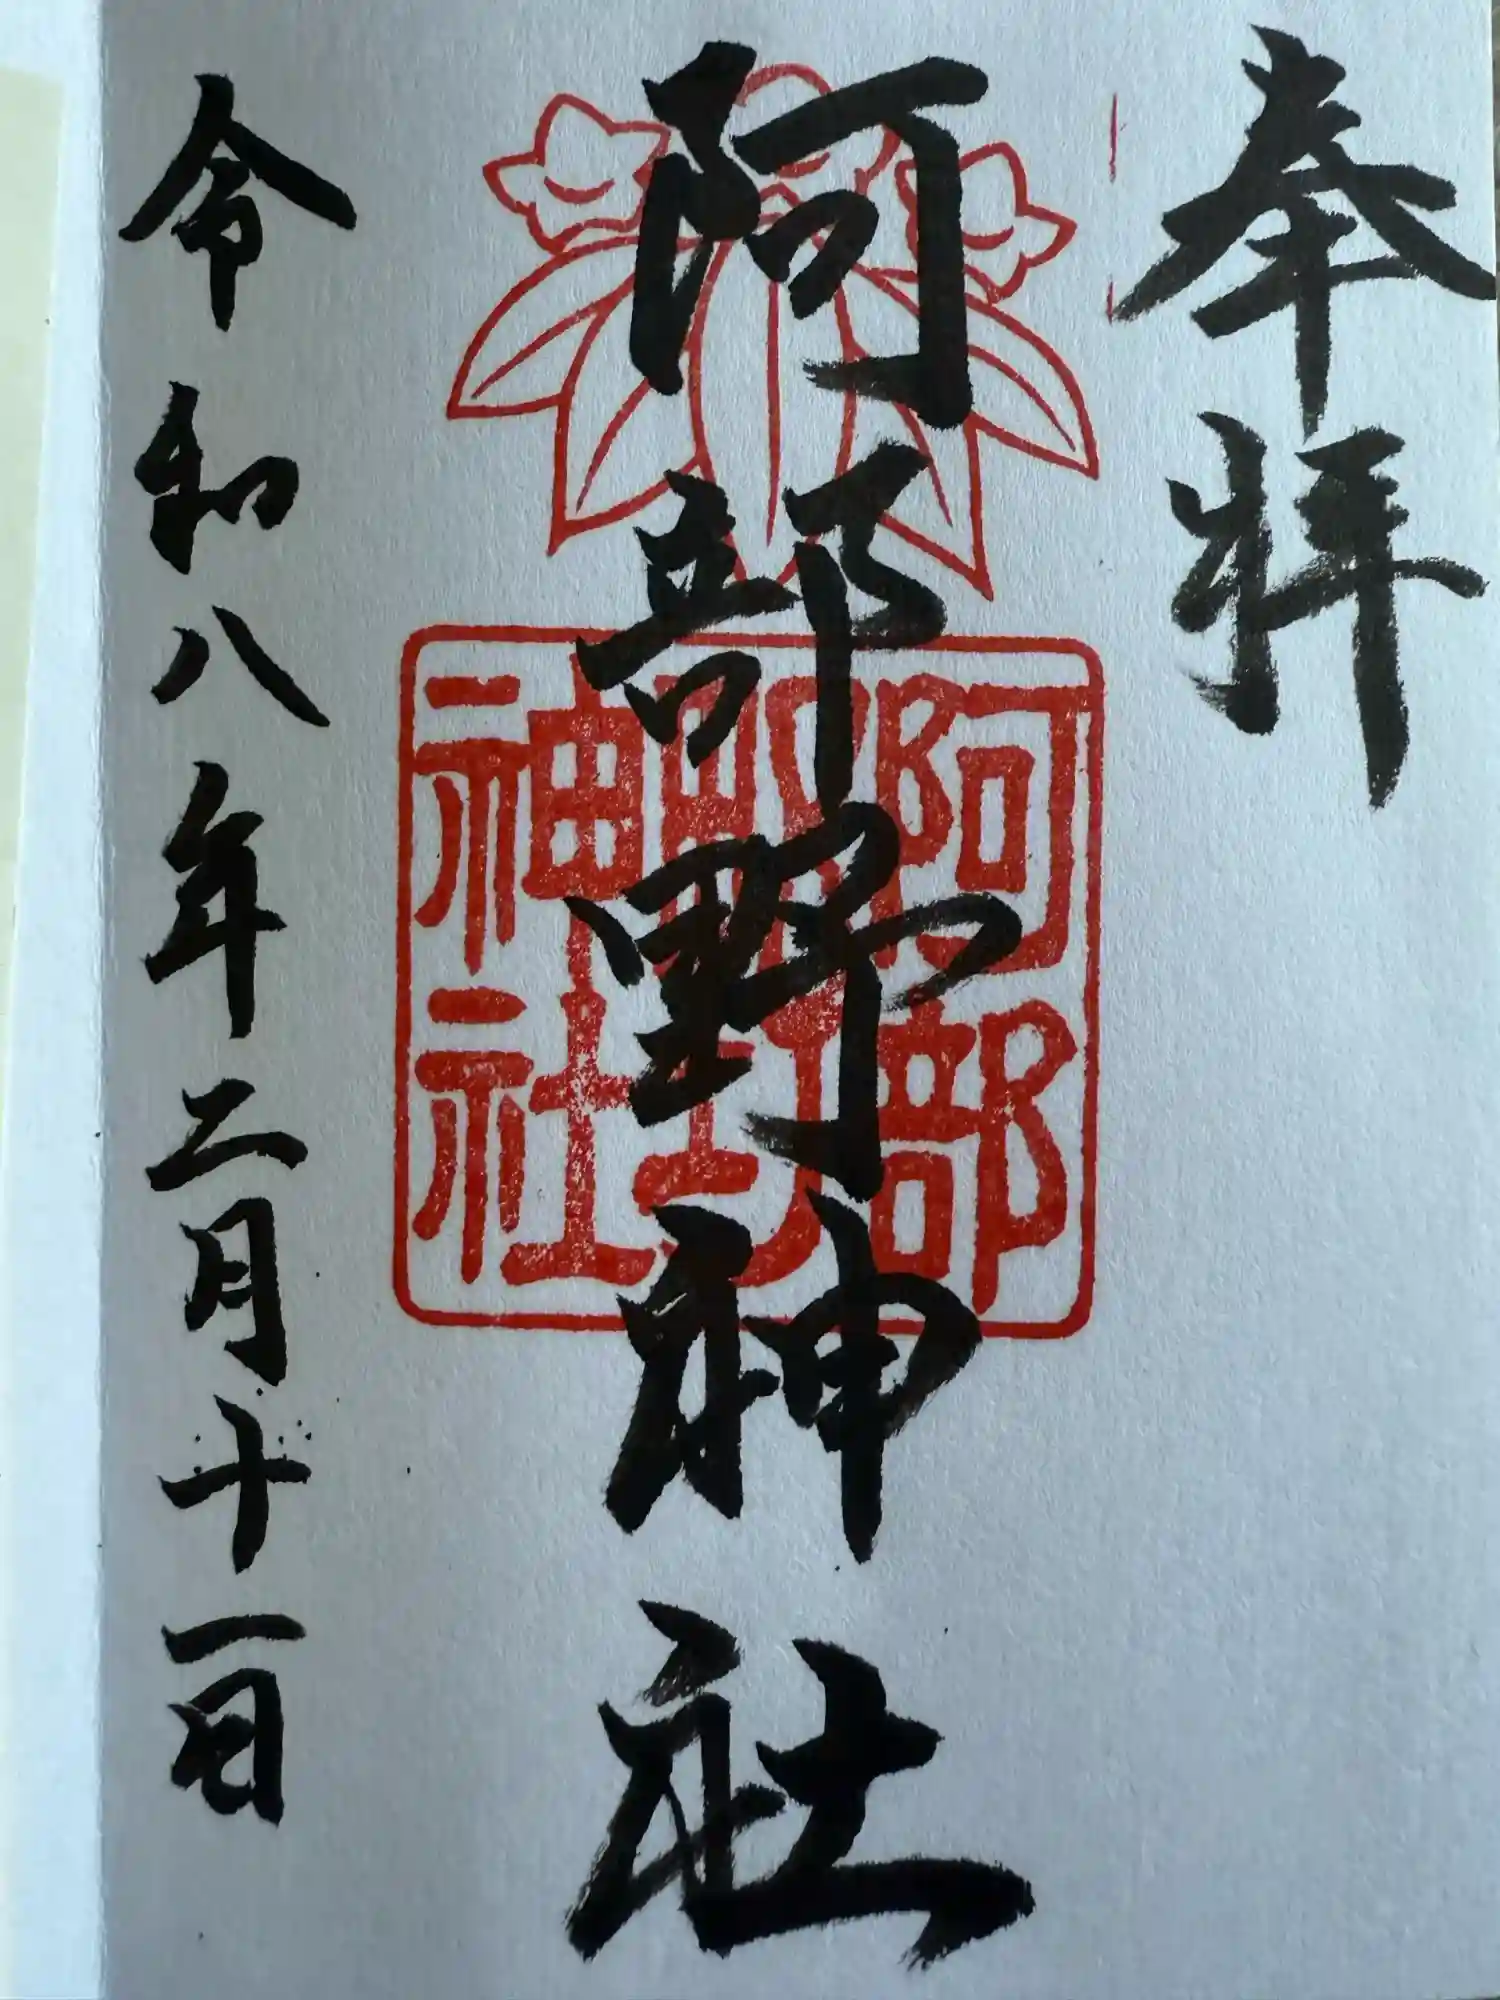 奉拝
阿部野神社
阿部
野
神社
令和八年二月十一日